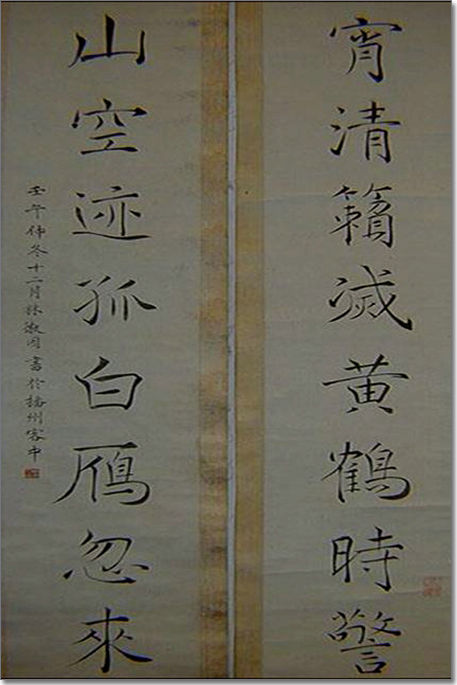 宵清籟滅黄鶴時警
山空迹孤白鴈忽來
壬午仲冬十二月林書於州客中